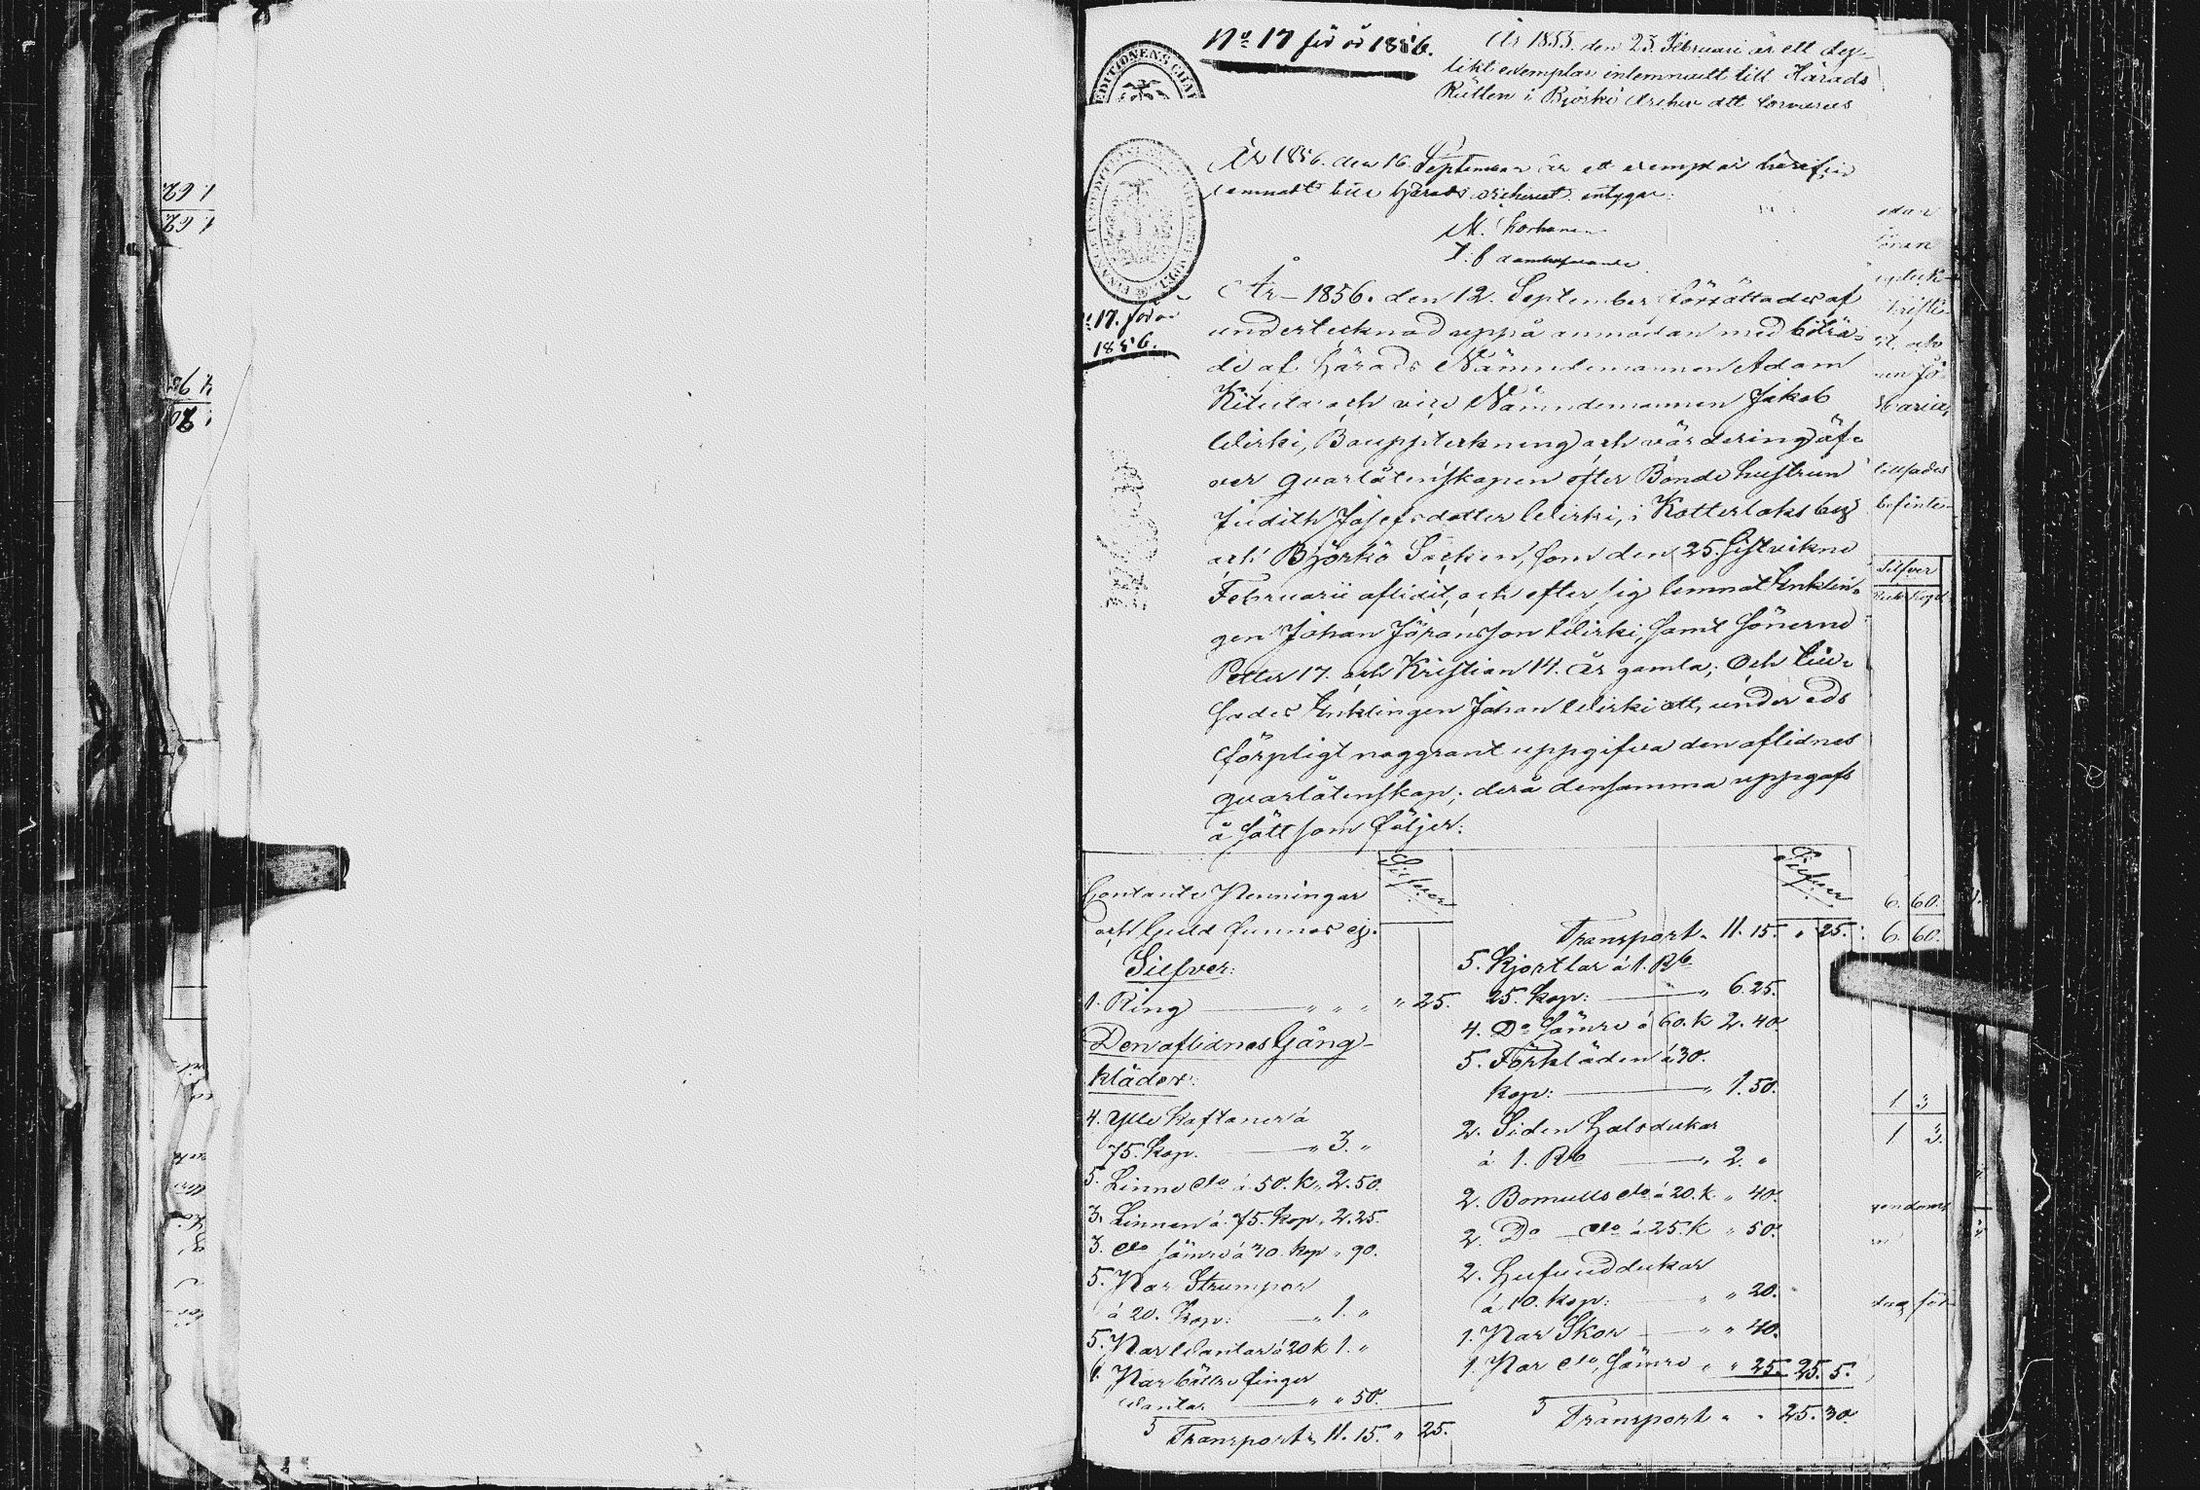 No 17 för år 1856.
År 1855. den 23. Februari är ett dup-
likt exemplar inlemnadt till Härads
Rätten i Björkö Archiv att förvaras
År 1856. den 16. September är ett exemplar häraf in
lemnadt till Härads archivet intygar:
M. Korhonen
T: f domhafvande
No 17. för år
1856.
År 1856. den 12. September författades af
undertecknad uppå anmodan med biträ-
de af Härads Nämndemannen Adam
Kitula och vice Nämndemannen Jakob
Wirki, Bouppteckning och värdering öf-
ver qvarlåtenskapen efter Bonde hustrun
Judith Josefsdotter Wirki, i Kotterlaks by
och Björkö Socken, som den 25. sistvikne
Februarii aflidit, och efter sig lemnat Enklin-
gen Johan Jöransson Wirki, samt sönerne
Petter 17. och Kristian 14. år gamla; Och till-
sades Enklingen Johan Wirki att, under eds
förpligt noggrant uppgifva den aflidnes
qvarlåtenskap; derå densamma uppgafs
å sätt som följer:
Silfver
Contante Penningar
och Guld funnos ej.
Silfver:
1. Ring " " " " 25.
Den aflidnes Gång-
kläder:
4. Ylle Kaftaner à
75. Kop. " 3. "
5. Linne do à 50. K. " 2.50.
3. Linnen à 75. Kop. " 2.25.
3. do sämre à 30. Kop " 90.
5. Par Strumpor
à 20. Kop: " 1. "
5. Par Vantar à 20 k 1. "
1. Par bättre finger
vantar " " 50.
Transport " 11. 15. " 25.
Silfver
Transport " 11. 15. " 25.
5. Kjortlar à 1. Rb
25. Kop: " 6.25.
4. Do sämre à 60. k 2.40
5. Förkläden à 30.
kop: " 1.50.
2. Siden Halsdukar
à 1. Rb " 2. "
2. Bomulls do à 20. k. " 40.
2. Do do à 25. k " 50.
2. Hufvuddukar
à 10. kop: " " 20.
1. Par Skor " " 40.
1. Par do sämre " " 25. 25. 5.
Transport " " 25. 30.
Silfver
6. 60.
6. 60.
1 3
1 3.